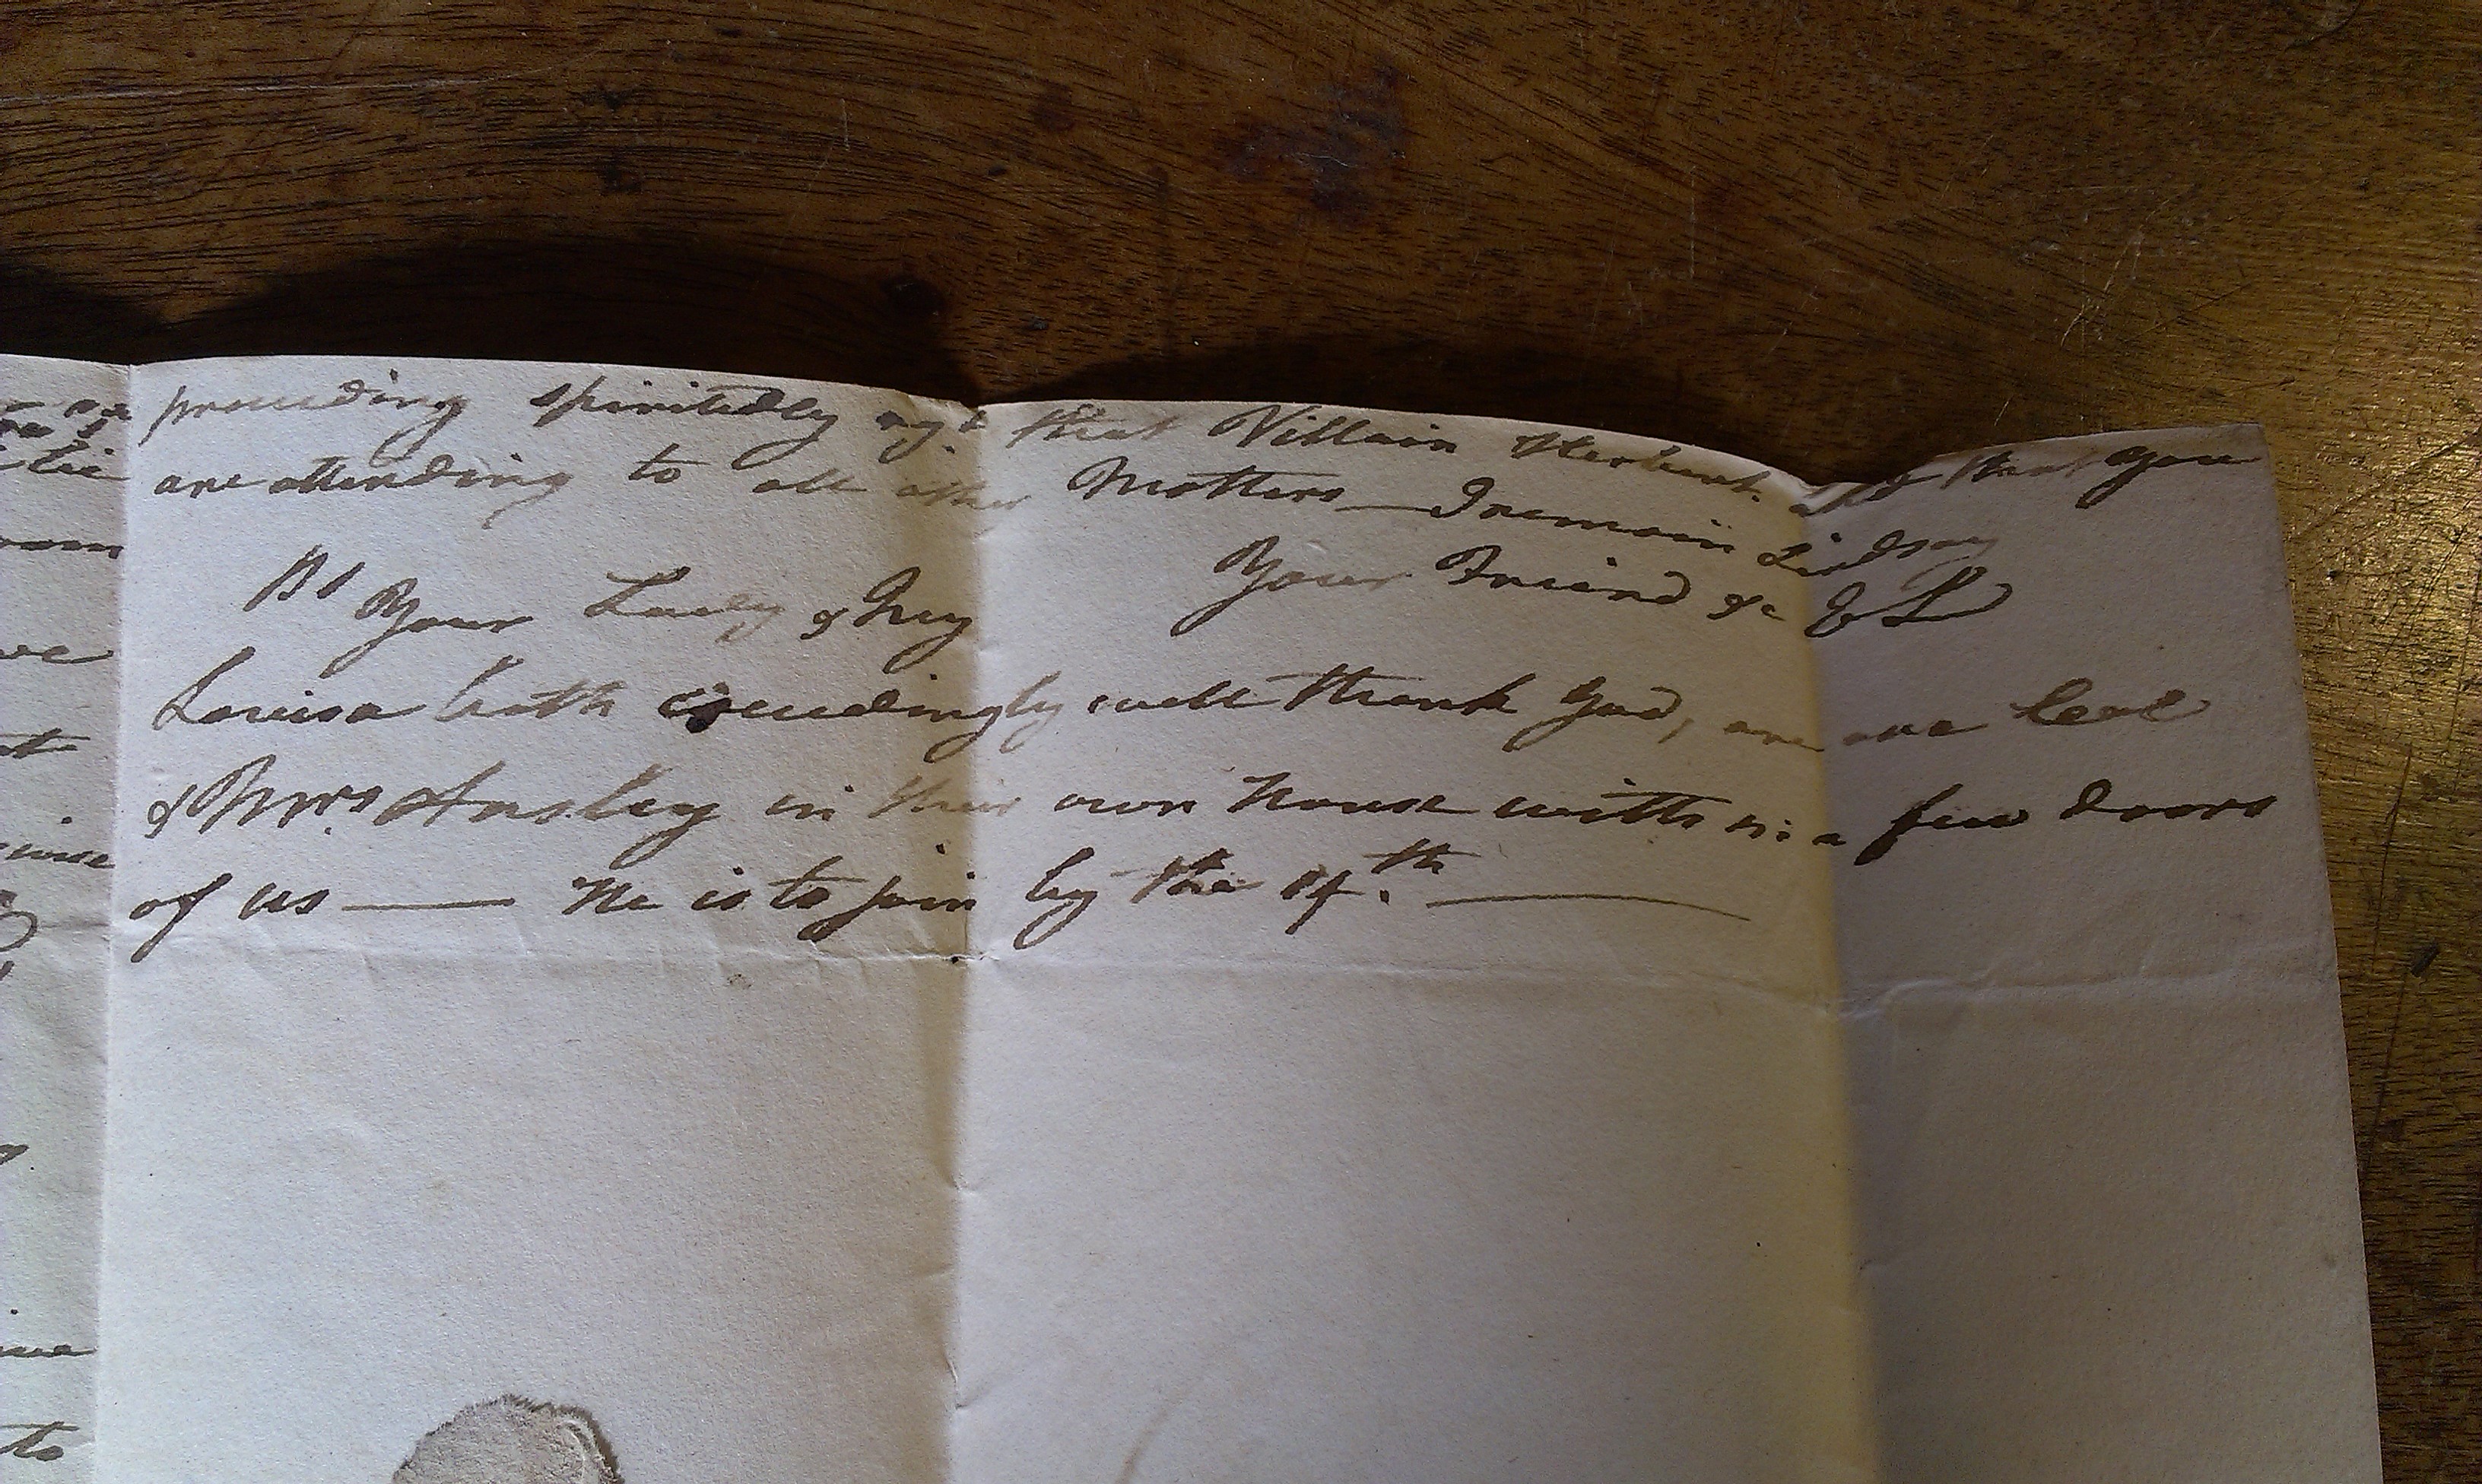 proceeding spiritedly agt that Villain Herbert. and that you
are attending to all other Matters — I remain Lindsay
Your Friend &c
Your Lady & my
Louisa both exceedingly well thank God, are
& Mrs Ansley in their own House within a few doors
of us — He is to join by the 14.th —
to